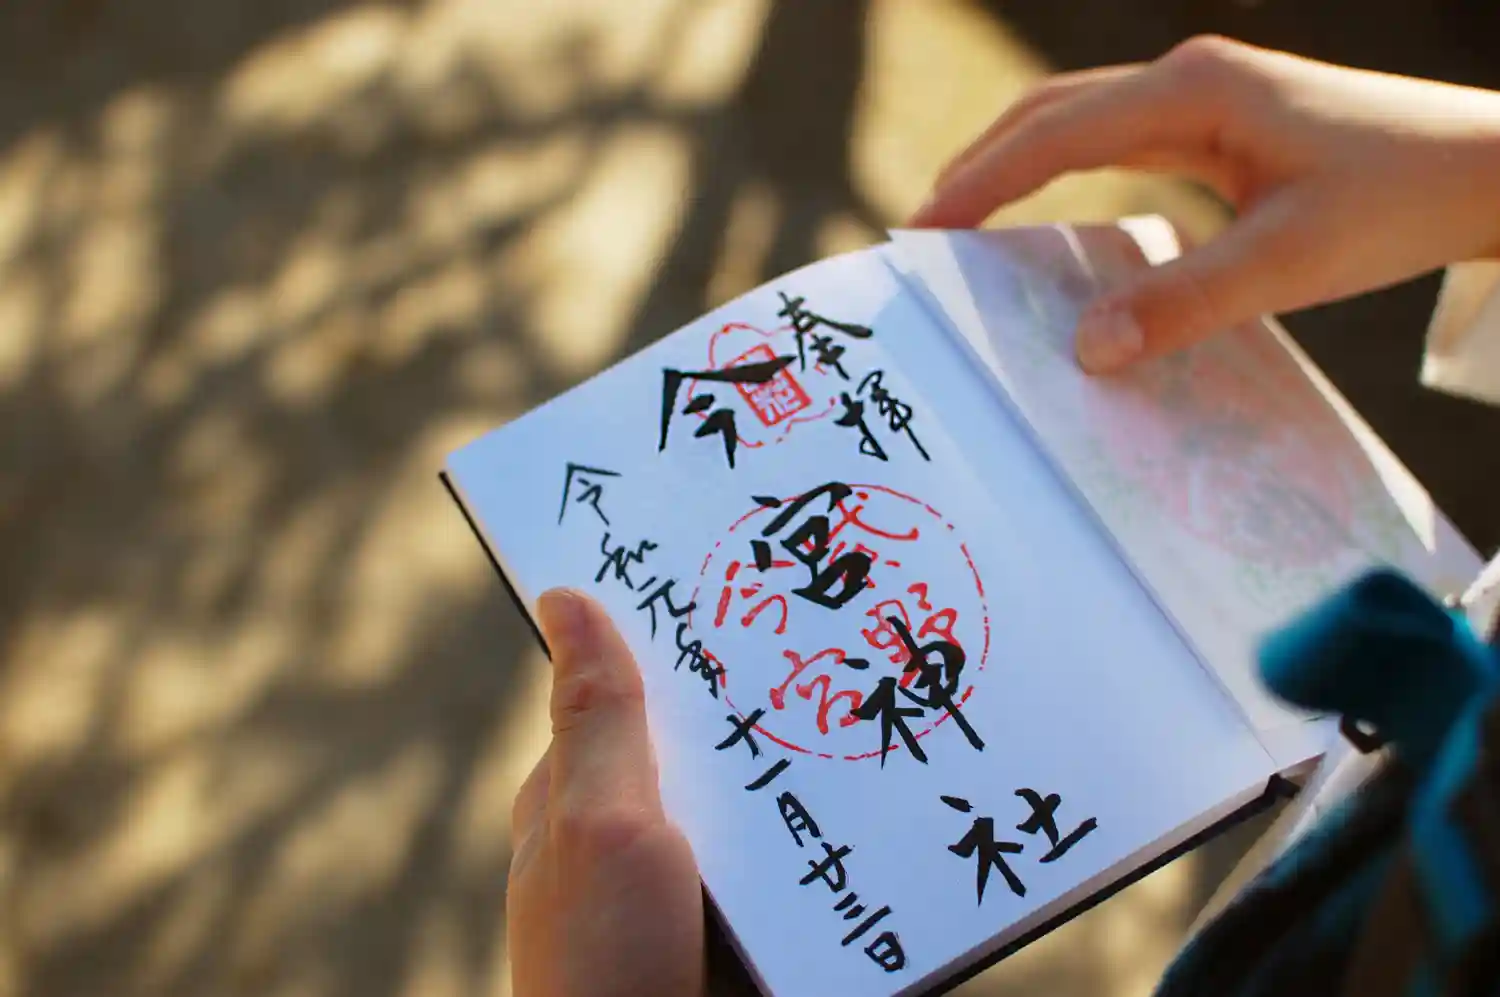 奉拝
今宮神社
令和元年十一月廿三日
紫野
今宮